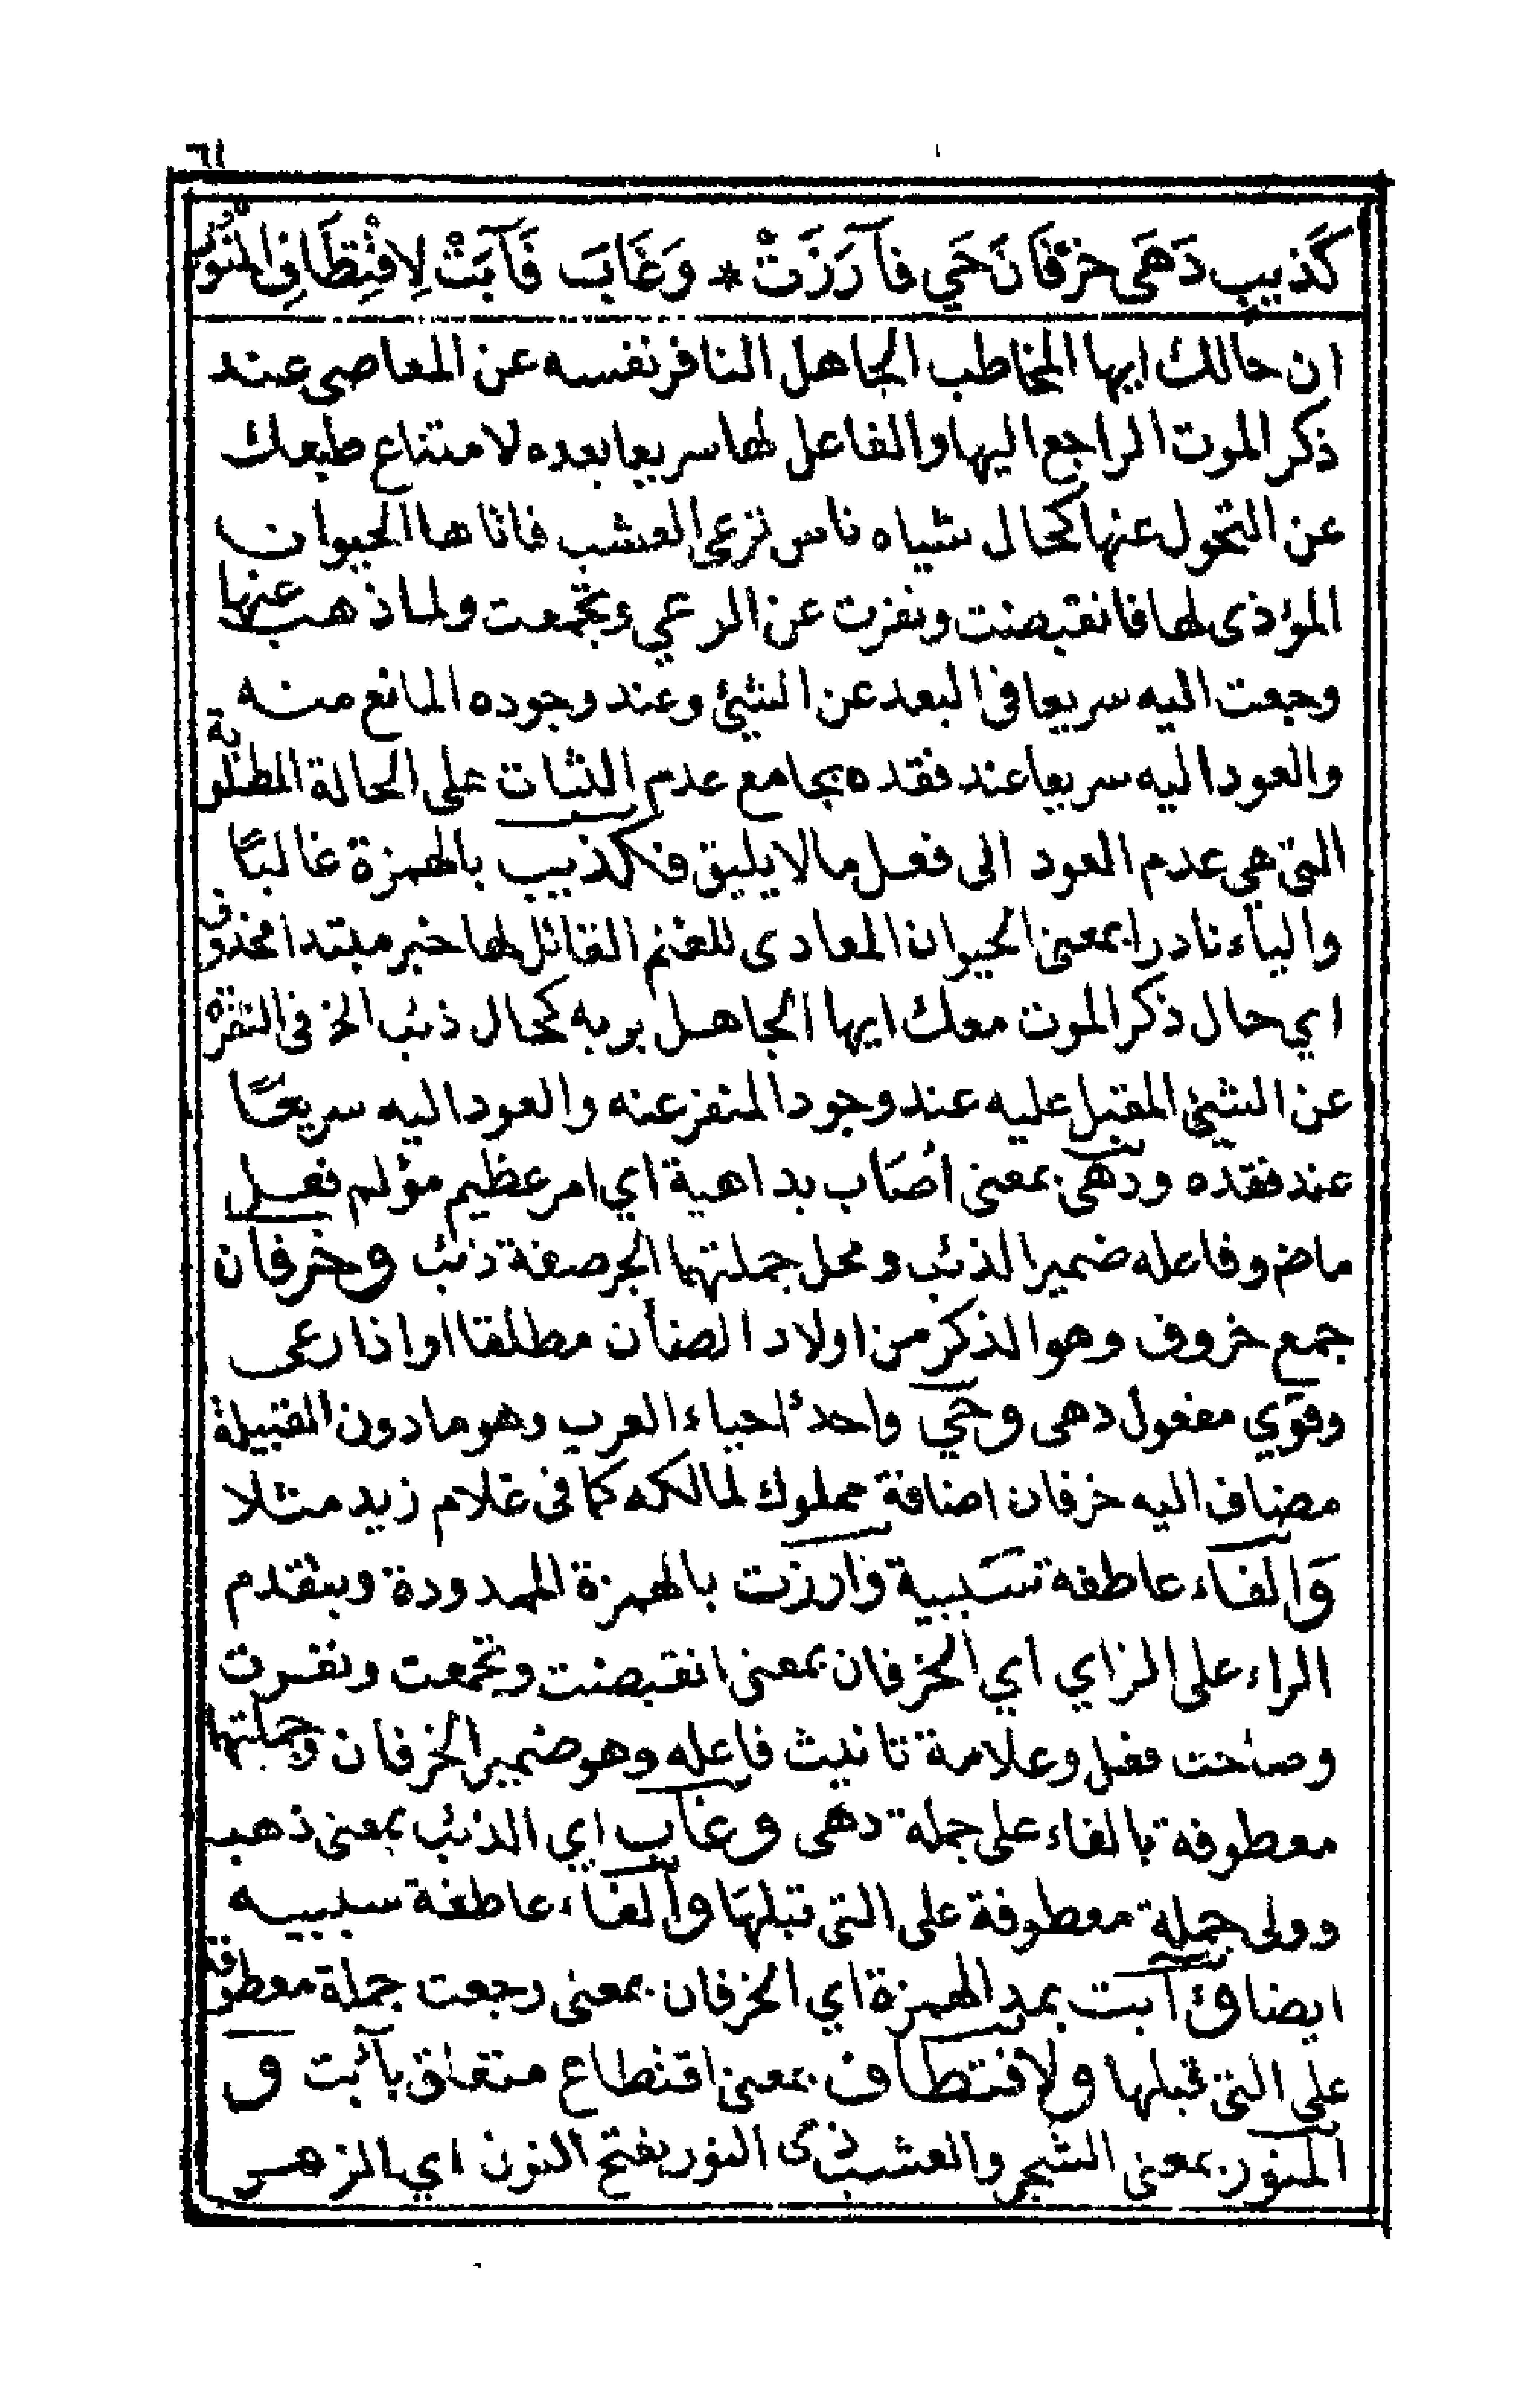 ٦١
كَذِيبٍ دَهَى خَرْفَانَ حَيٍّ فَآرَزَتْ * وَغَابَ فَآبَتْ لِاقْتِطَافِ الْمُنَوَّرِ
ان حالك ايها المخاطب الجاهل النافر نفسه عن المعاصي عند
ذكر الموت الراجع اليها والفاعل لها سريعا بعده لامتناع طبعك
عن التحول عنها كحال شياه ناس ترعى العشب فاتاها الحيوان
المؤذى لها فانقبضت ونفرت عن الرعي وتجمعت ولما ذهب عنها
رجعت اليه سريعا في البعد عن الشيئ وعند وجوده المانع منه
والعود اليه سريعا عند فقده بجامع عدم الثبات على الحالة المطلوبة
التي هي عدم العود الى فعل ما لا يليق فكذيب بالهمزة غالبًا
والياء نادرا بمعنى الحيوان المعادى للغنم القاتل لها خبر مبتدا محذوف
اي حال ذكر الموت معك ايها الجاهل بربه كحال ذئب الخ في النفرة
عن الشيئ المقبل عليه عند وجود المنفر عنه والعود اليه سريعًا
عند فقده ودهى بمعنى اصَاب بداهية اي امر عظيم مؤلم فعل
ماض وفاعله ضمير الذئب ومحل جملتهما الجر صفة ذئب وخرفان
جمع خروف وهو الذكر من اولاد الضأن مطلقا او اذا رعى
وقوي مفعول دهى وحي واحد احياء العرب وهو ما دون القبيلة
مضاف اليه خرفان اضافة مملوك لمالكه كما في غلام زيد مثلا
وَالفاء عاطفة سَببية وارزت بالهمزة الممدودة وبتقدم
الراء على الزاي اي الخرفان بمعنى انقبضت وتجمعت ونفرت
وصاحت فعل وعلامة تانيث فاعله وهو ضمير الخرفان وجملتها
معطوفة بالفاء على جملة دهى وغاب اي الذئب بمعنى ذهب
وولى جملة معطوفة على التي قبلها والفاء عاطفة سببيه
ايضا وآبت بمد الهمزة اي الخرفان بمعنى رجعت جملة معطوفة
على التي قبلها ولاقتطاف بمعنى اقتطاع متعلق بآبت و
المنور بمعنى الشجر والعشب ذى النور بفتح النون اي الزهر